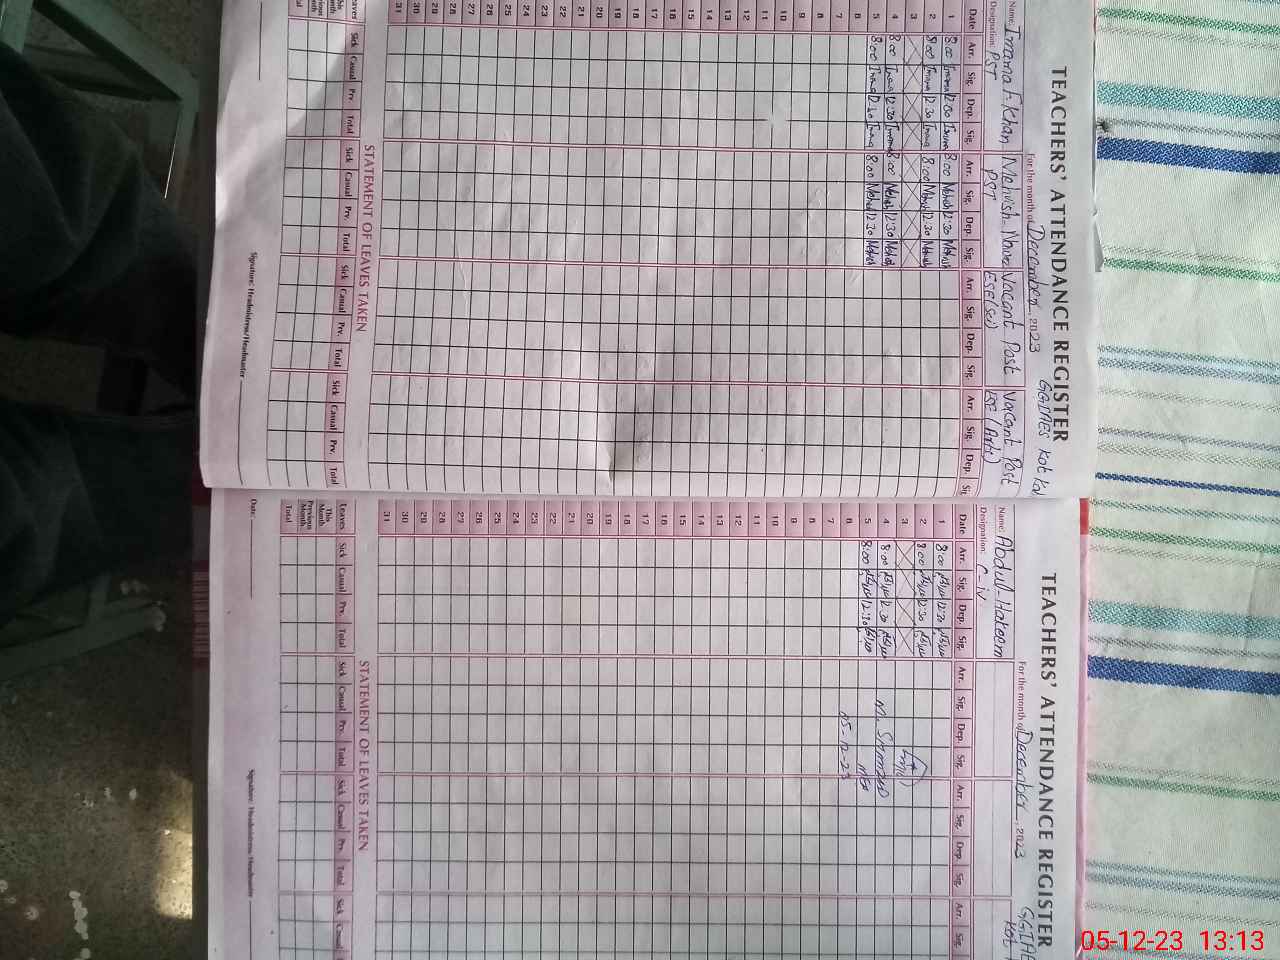 TEACHERS' ATTENDANCE REGISTER
GGIMES Kot
For the month of December, 2023
Name: Imama F. Khan Mehvish Noor Vacant Post Vacant Post
Designation: PST PST ESE(Sci) ESE(Arts)
Date Arr. Sig. Dep. Sig. Arr. Sig. Dep. Sig. Arr. Sig. Dep. Sig. Arr. Sig. Dep.
1 8:00 Imama 12:30 Imama 8:00 Mehvish 12:30 Mehvish
2 8:00 Imama 12:30 Imama 8:00 Mehvish 12:30 Mehvish
3
4 8:00 Imama 12:30 Imama 8:00 Mehvish 12:30 Mehvish
5 8:00 Imama 12:30 Imama 8:00 Mehvish 12:30 Mehvish
6
7
8
9
10
11
12
13
14
15
16
17
18
19
20
21
22
23
24
25
26
27
28
29
30
31
STATEMENT OF LEAVES TAKEN
Leaves Sick Casual Prv. Total Sick Casual Prv. Total Sick Casual Prv. Total Sick Casual Prv. Total
This Month
Previous Month
Signature: Headmistress/Headmaster
TEACHERS' ATTENDANCE REGISTER
For the month of December, 2023
Name: Abdul-Hakeem
Designation: C-iv
Date Arr. Sig. Dep. Sig. Arr. Sig. Dep. Sig. Arr. Sig. Dep. Sig. Arr. Sig.
1 8:00 12:30
2 8:00 12:30
3
4 8:00 12:30
5 8:00 12:30
6
7
8
9
10
11
12
13
14
15
16
17
18
19
20
21
22
23
24
25
26
27
28
29
30
31
M. Shahzad
MEA
05-12-23
STATEMENT OF LEAVES TAKEN
Leaves Sick Casual Prv. Total Sick Casual Prv. Total Sick Casual Prv. Total Sick
This Month
Previous Month
Total
Date: Signature: Headmistress/Headmaster
05-12-23 13:13